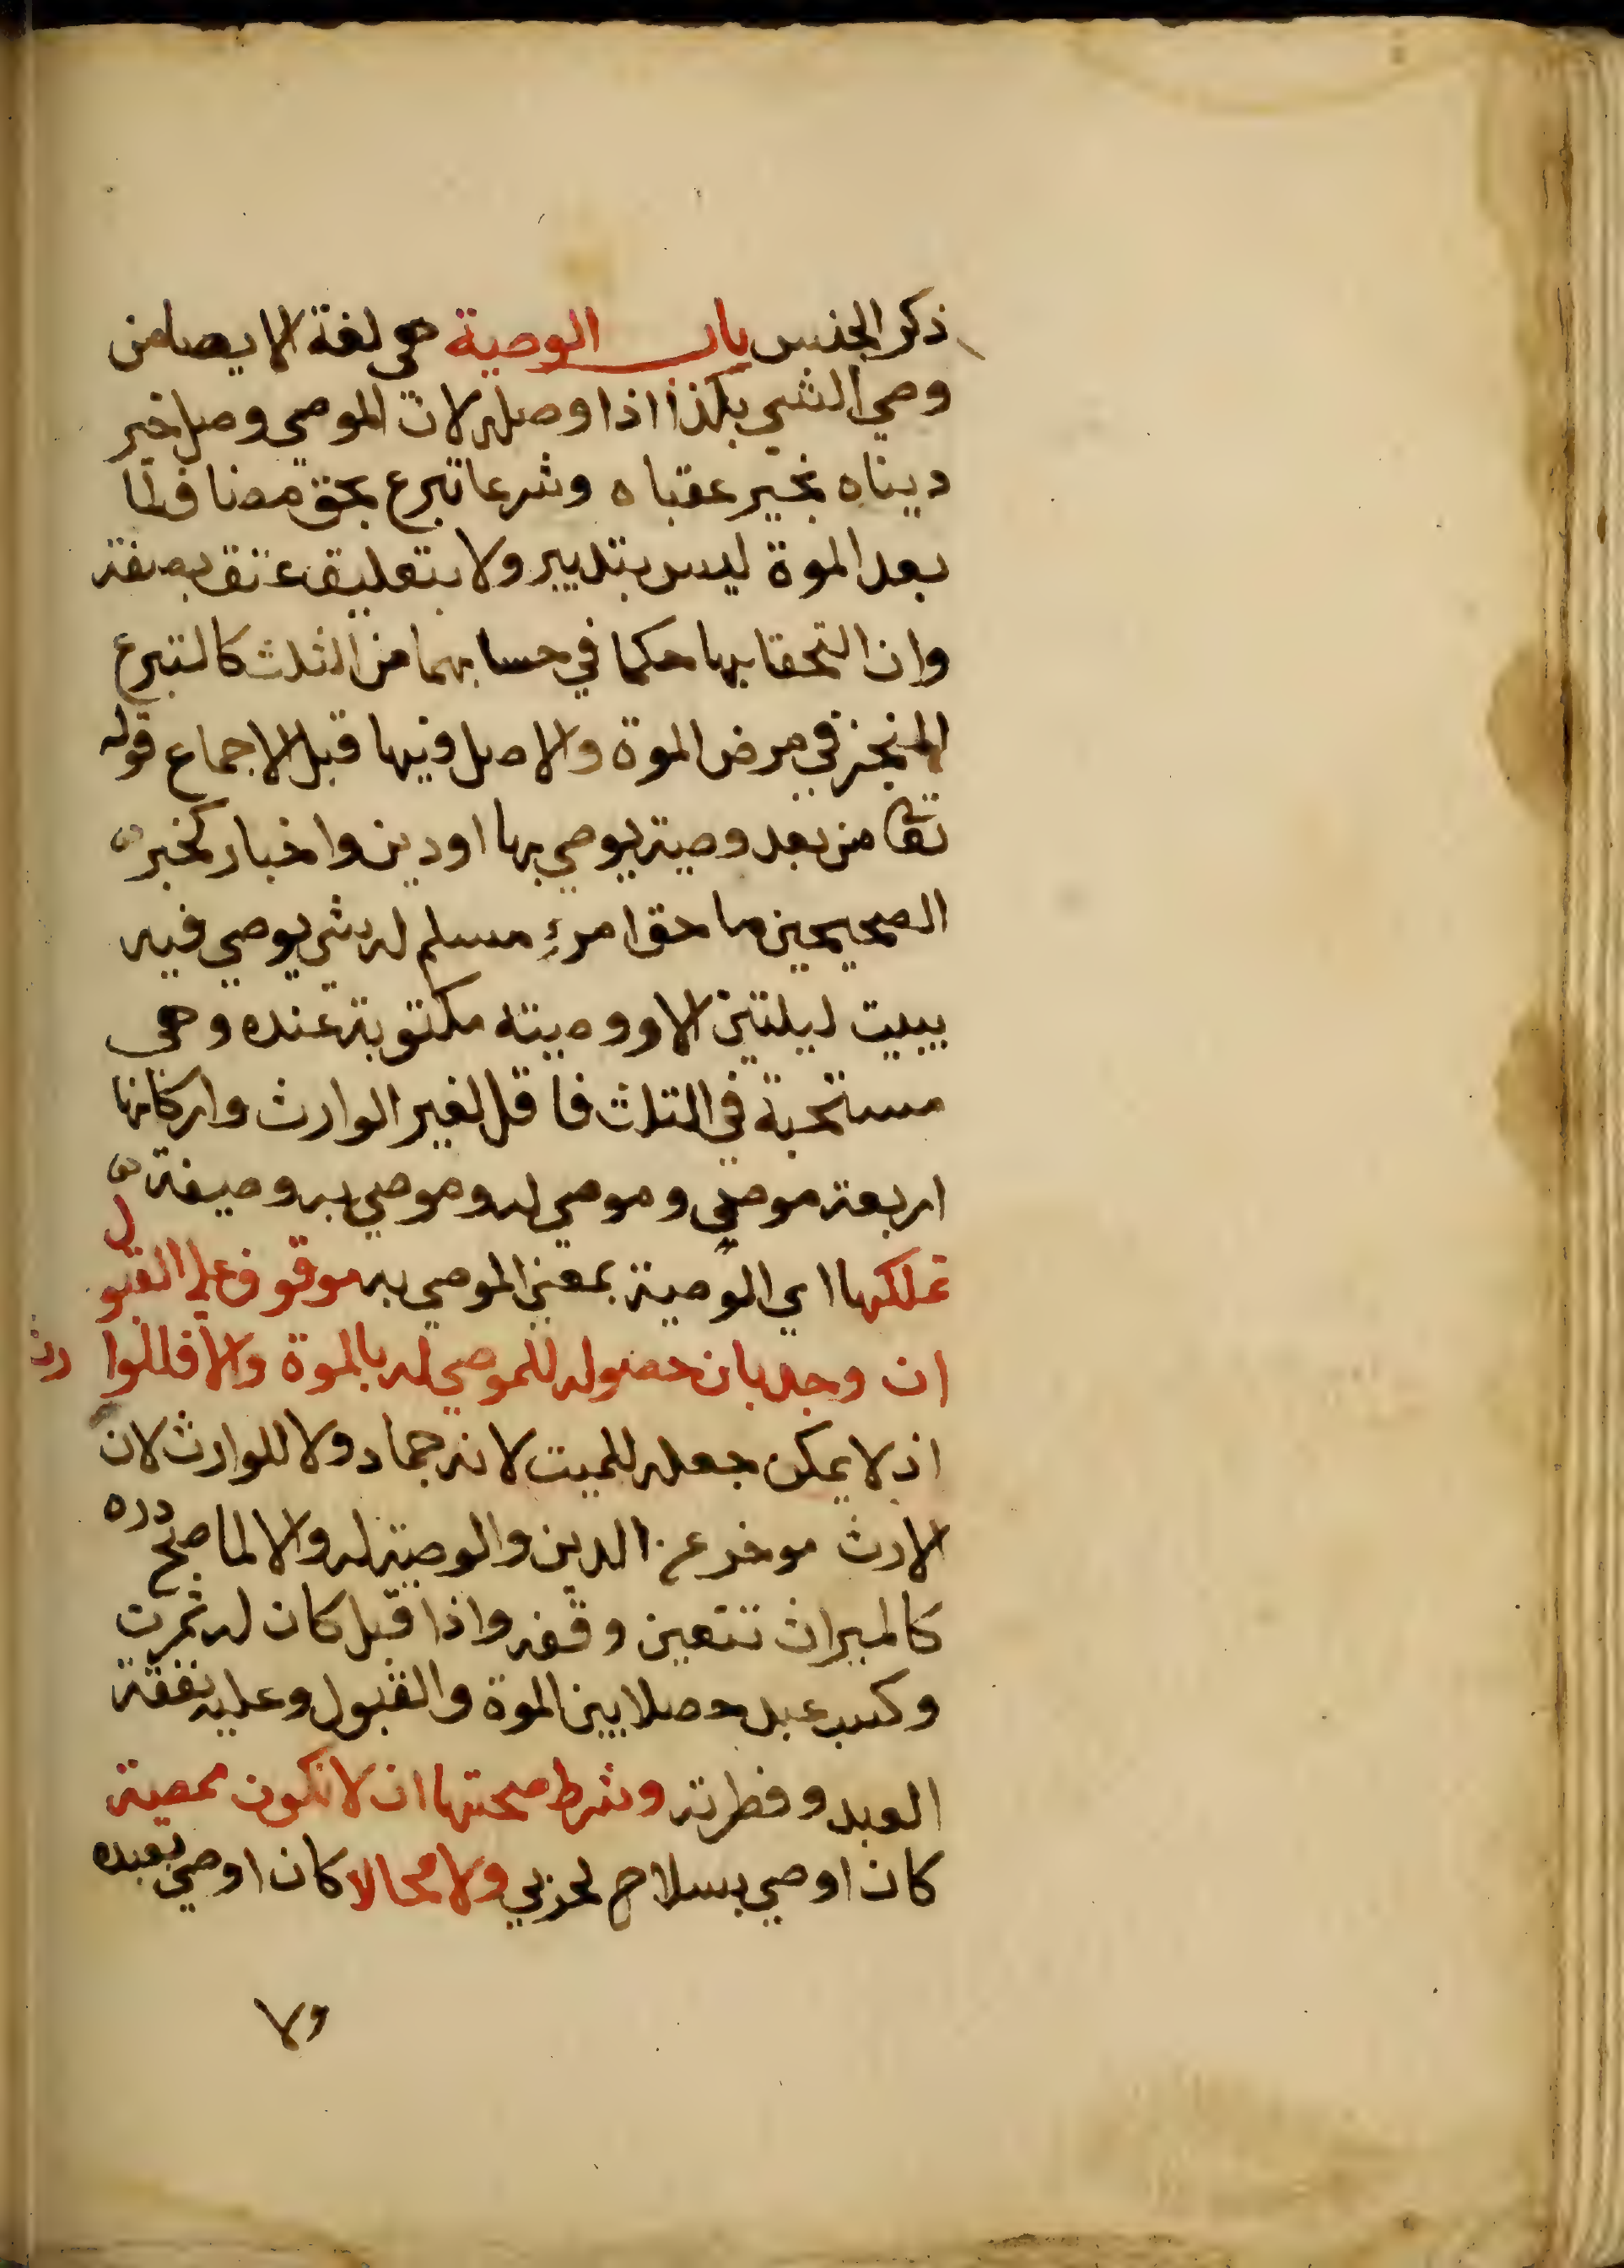 ذكر الجنس باب الوصية هي لغة الايصا من
وصي الشي بكذا اذا وصله لان الموصي وصل خير
ديناه بخير عقباه وشرعا تبرع بحق مضاف لما
بعد الموة ليس بتدبير ولا بتعليق عتق بصفة
وان التحقا بها حكما في حسابهما من الثلث كالتبرع
المنجز في مرض الموة والاصل فيها قبل الاجماع قوله
تعا من بعد وصية يوصي بها او دين واخبار كخبر
الصحيحين ما حق امرئ مسلم له شي يوصي فيه
يبيت ليلتين الا ووصيته مكتوبة عنده وهي
مستحبة في الثلث فاقل لغير الوارث واركانها
اربعة موصي وموصي له وموصي به وصيغة
تملكها اي الوصية بمعني الموصي به موقوف علي القبول
ان وجد بان حصوله للموصي له بالموة والا فللوارث
اذ لا يمكن جعله للميت لانه جماد ولا للوارث لان
الارث موخر عن الدين والوصية له والا لما صح رده
كالميراث تتعين وقفه واذا قبل كان له ثمرت
وكسب عبد حصلا بين الموة والقبول وعليه نفقة
العبد وفطرته وشرط صحتها ان لا تكون معصية
كان اوصي بسلاح لحربي ولا محالا كان اوصي بعبده
ولا